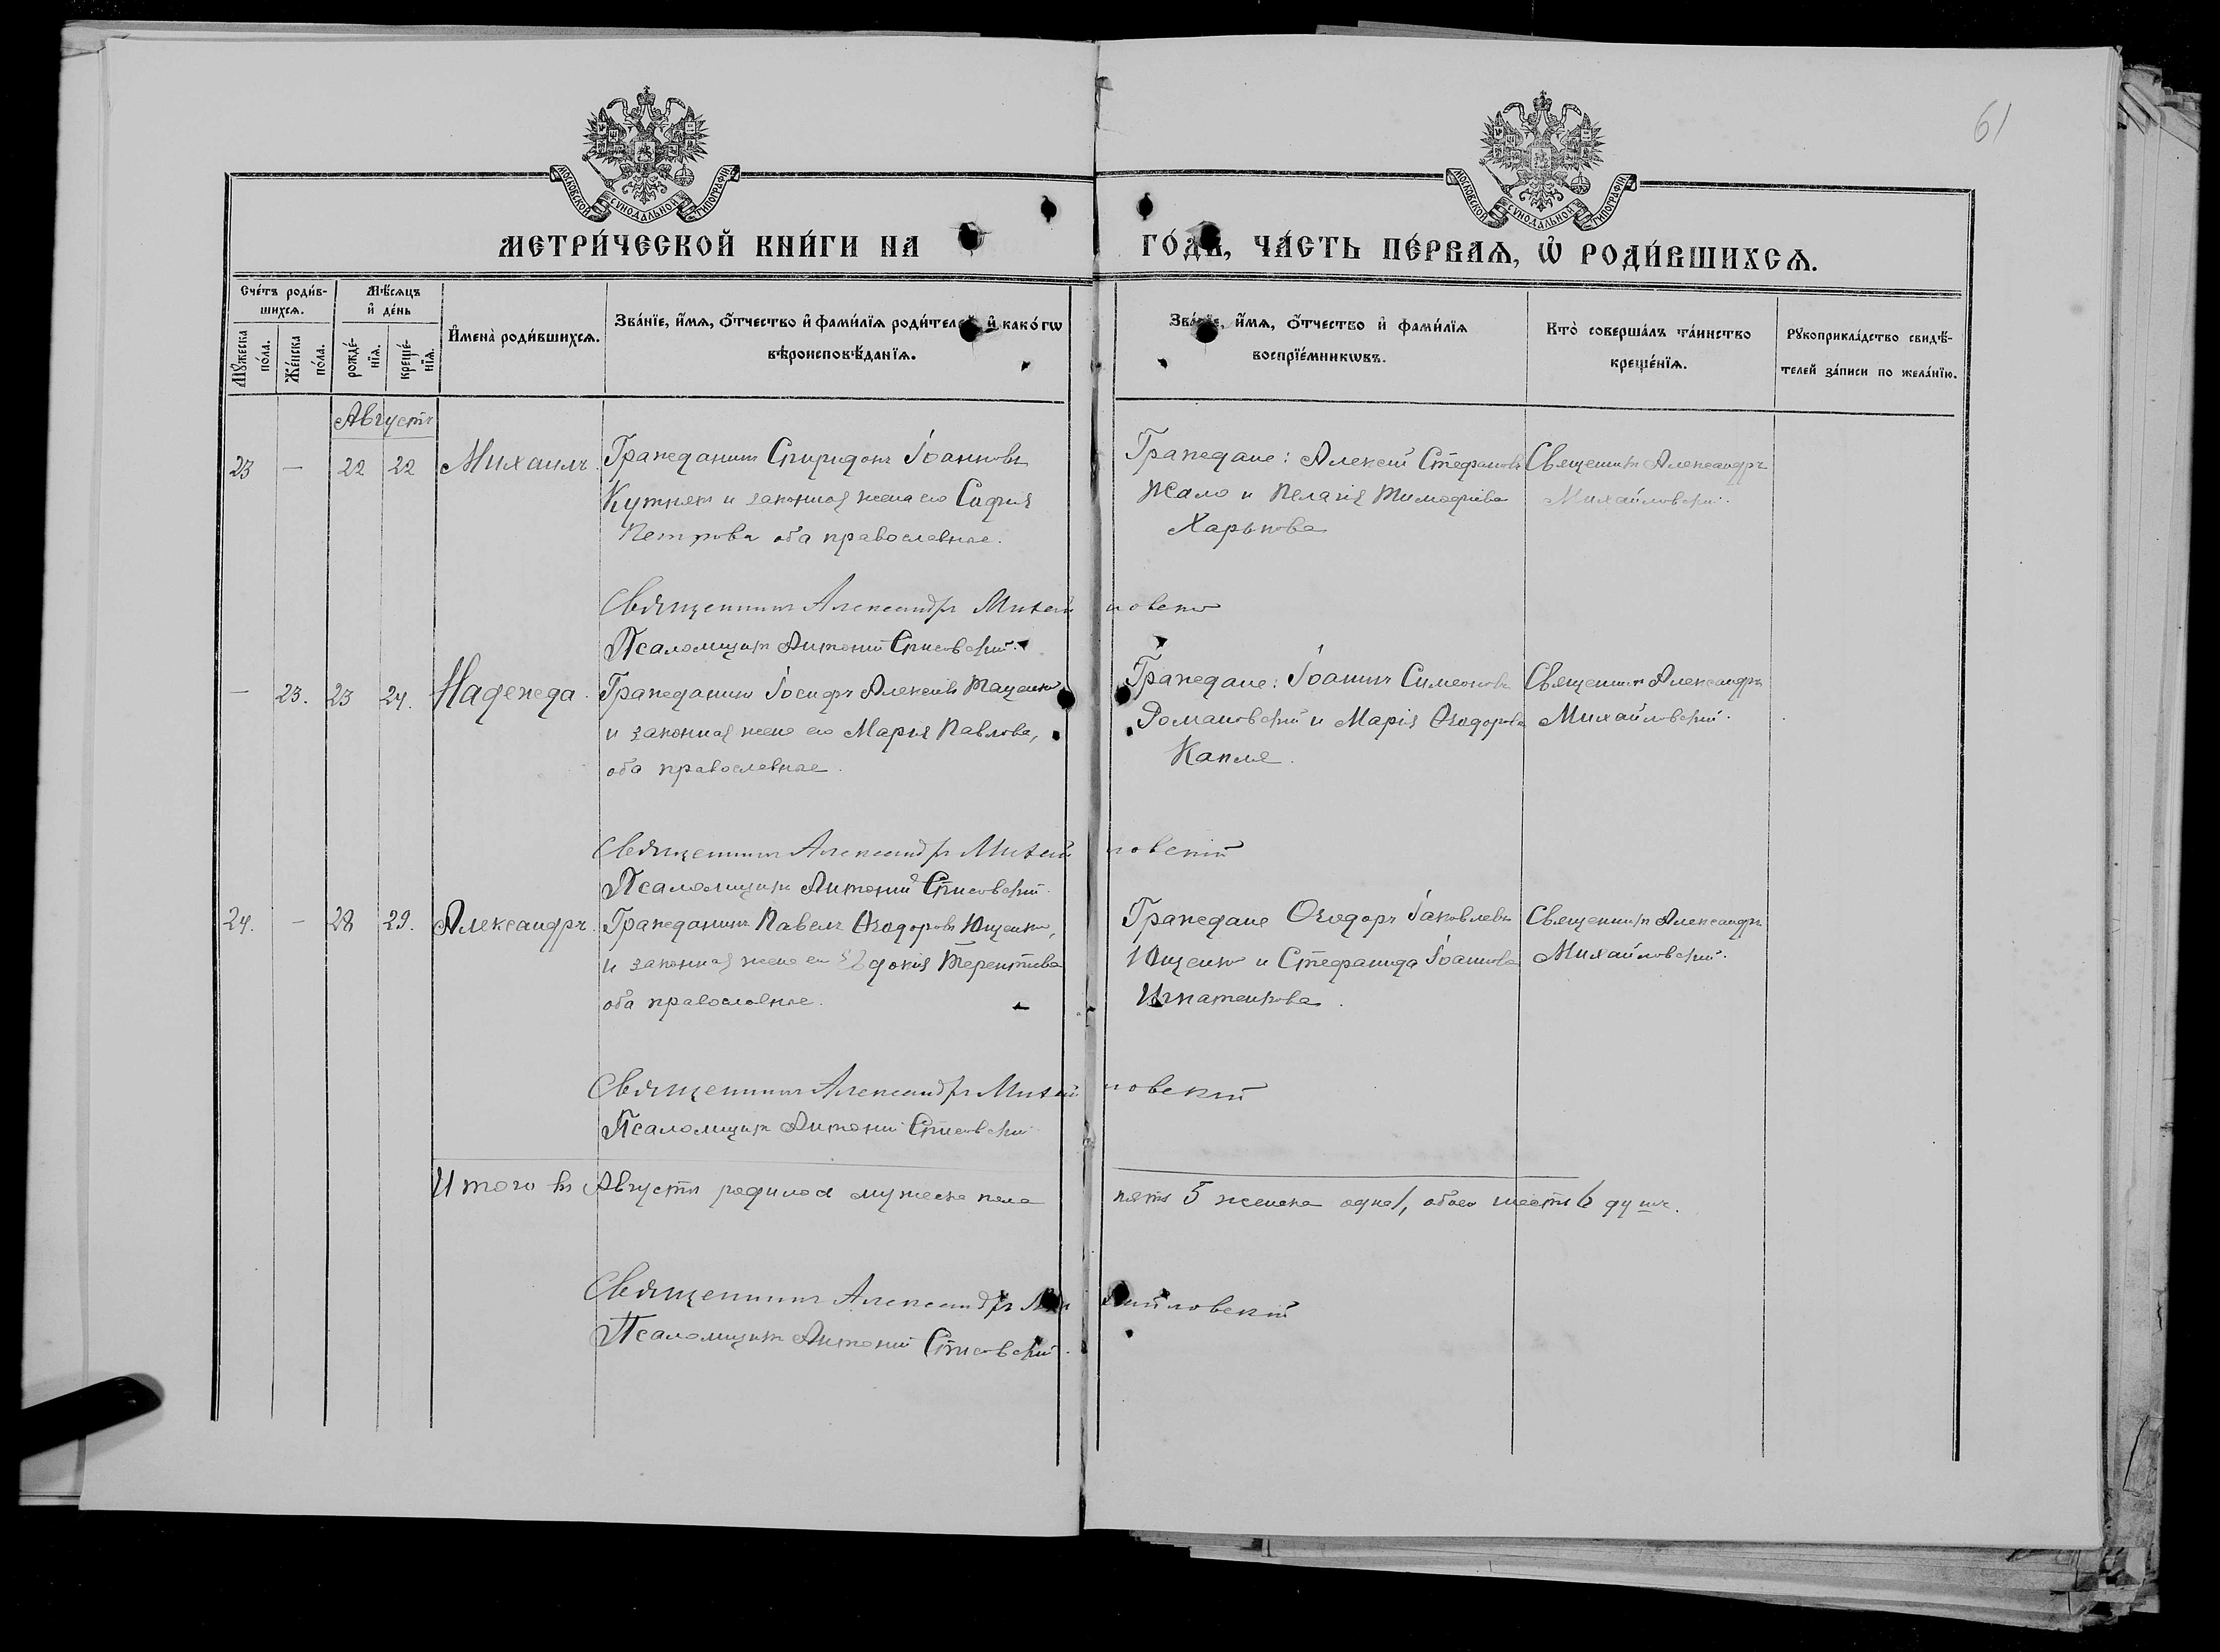 61
МОСКОВСКОЙ СѴНОДАЛЬНОЙ ТИПОГРАФІИ
МОСКОВСКОЙ СѴНОДАЛЬНОЙ ТИПОГРАФІИ
МЕТРИ́ЧЕСКОЙ КНИ́ГИ НА ГО́ДЪ, ЧА́СТЬ ПЕ́РВАѦ, Ѡ҆ РОДИ́ВШИХСѦ.
Сче́тъ роди́в-
шихсѧ.
Мѣ́сѧцъ
и҆ де́нь
Мꙋ́жеска
по́ла.
Же́нска
по́ла.
рожде́-
нїѧ.
креще́-
нїѧ.
И҆мена̀ роди́вшихсѧ.
Зва́нїе, и҆́мѧ, ѻ҆́тчество и҆ фами́лїѧ роди́телей и҆ како́гѡ
вѣроисповѣ́данїѧ.
Зва́нїе, и҆́мѧ, ѻ҆́тчество и҆ фами́лїѧ
воспрїе́мникѡвъ.
Кто̀ соверша́лъ та́инство
креще́нїѧ.
Рꙋкоприкла́дство свидѣ́-
телей за́писи по жела́нїю.
Августъ
23 — 22 22 Михаилъ. Гражданинъ Спиридонъ Іоанновъ
Кутнякъ и законная жена его Софія
Петрова оба православные.
Граждане: Алексій Стефановъ
Жало и Пелагія Тимофіева
Харькова
Священникъ Александръ
Михайловскій.
Священникъ Александръ Михайловскій
Псаломщикъ Антоній Списовскій.
— 23. 23 24. Надежда. Гражданинъ Іосифъ Алексіевъ Таценко
и законная жена его Марія Павлова,
оба православные.
Граждане: Іоаннъ Симеоновъ
Романовскій и Марія Ѳеодорова
Капля.
Священникъ Александръ
Михайловскій.
Священникъ Александръ Михайловскій
Псаломщикъ Антоній Списовскій.
24. — 28 29. Александръ. Гражданинъ Павелъ Ѳеодоровъ Ющенко,
и законная жена его Евдокія Терентіева
оба православные.
Граждане Ѳеодоръ Іаковлевъ
Ющенко и Стефанида Іоаннова
Игнатенкова.
Священникъ Александръ
Михайловскій.
Священникъ Александръ Михайловскій
Псаломщикъ Антоній Списовскій
Итого въ Августѣ родилось мужеска пола пять 5 женска одна 1, обоего шесть 6 душъ.
Священникъ Александръ Михайловскій
Псаломщикъ Антоній Списовскій.